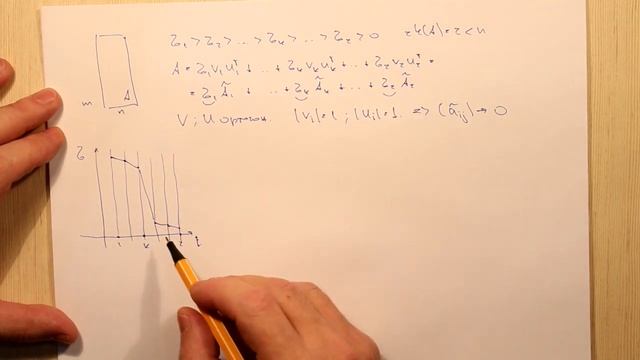 σ₁ > σ₂ > ... > σₖ > ... > σᵣ > 0 rk(A) = r < n
A = σ₁v₁u₁ᵀ + .. + σₖvₖuₖᵀ + .. + σᵣvᵣuᵣᵀ =
= σ₁Ã₁ + .. + σₖÃₖ + .. + σᵣÃᵣ
m A
n
V; U ортогон. |vᵢ| = 1; |uᵢ| = 1. => (ãᵢⱼ) → 0
σ
1 k r i